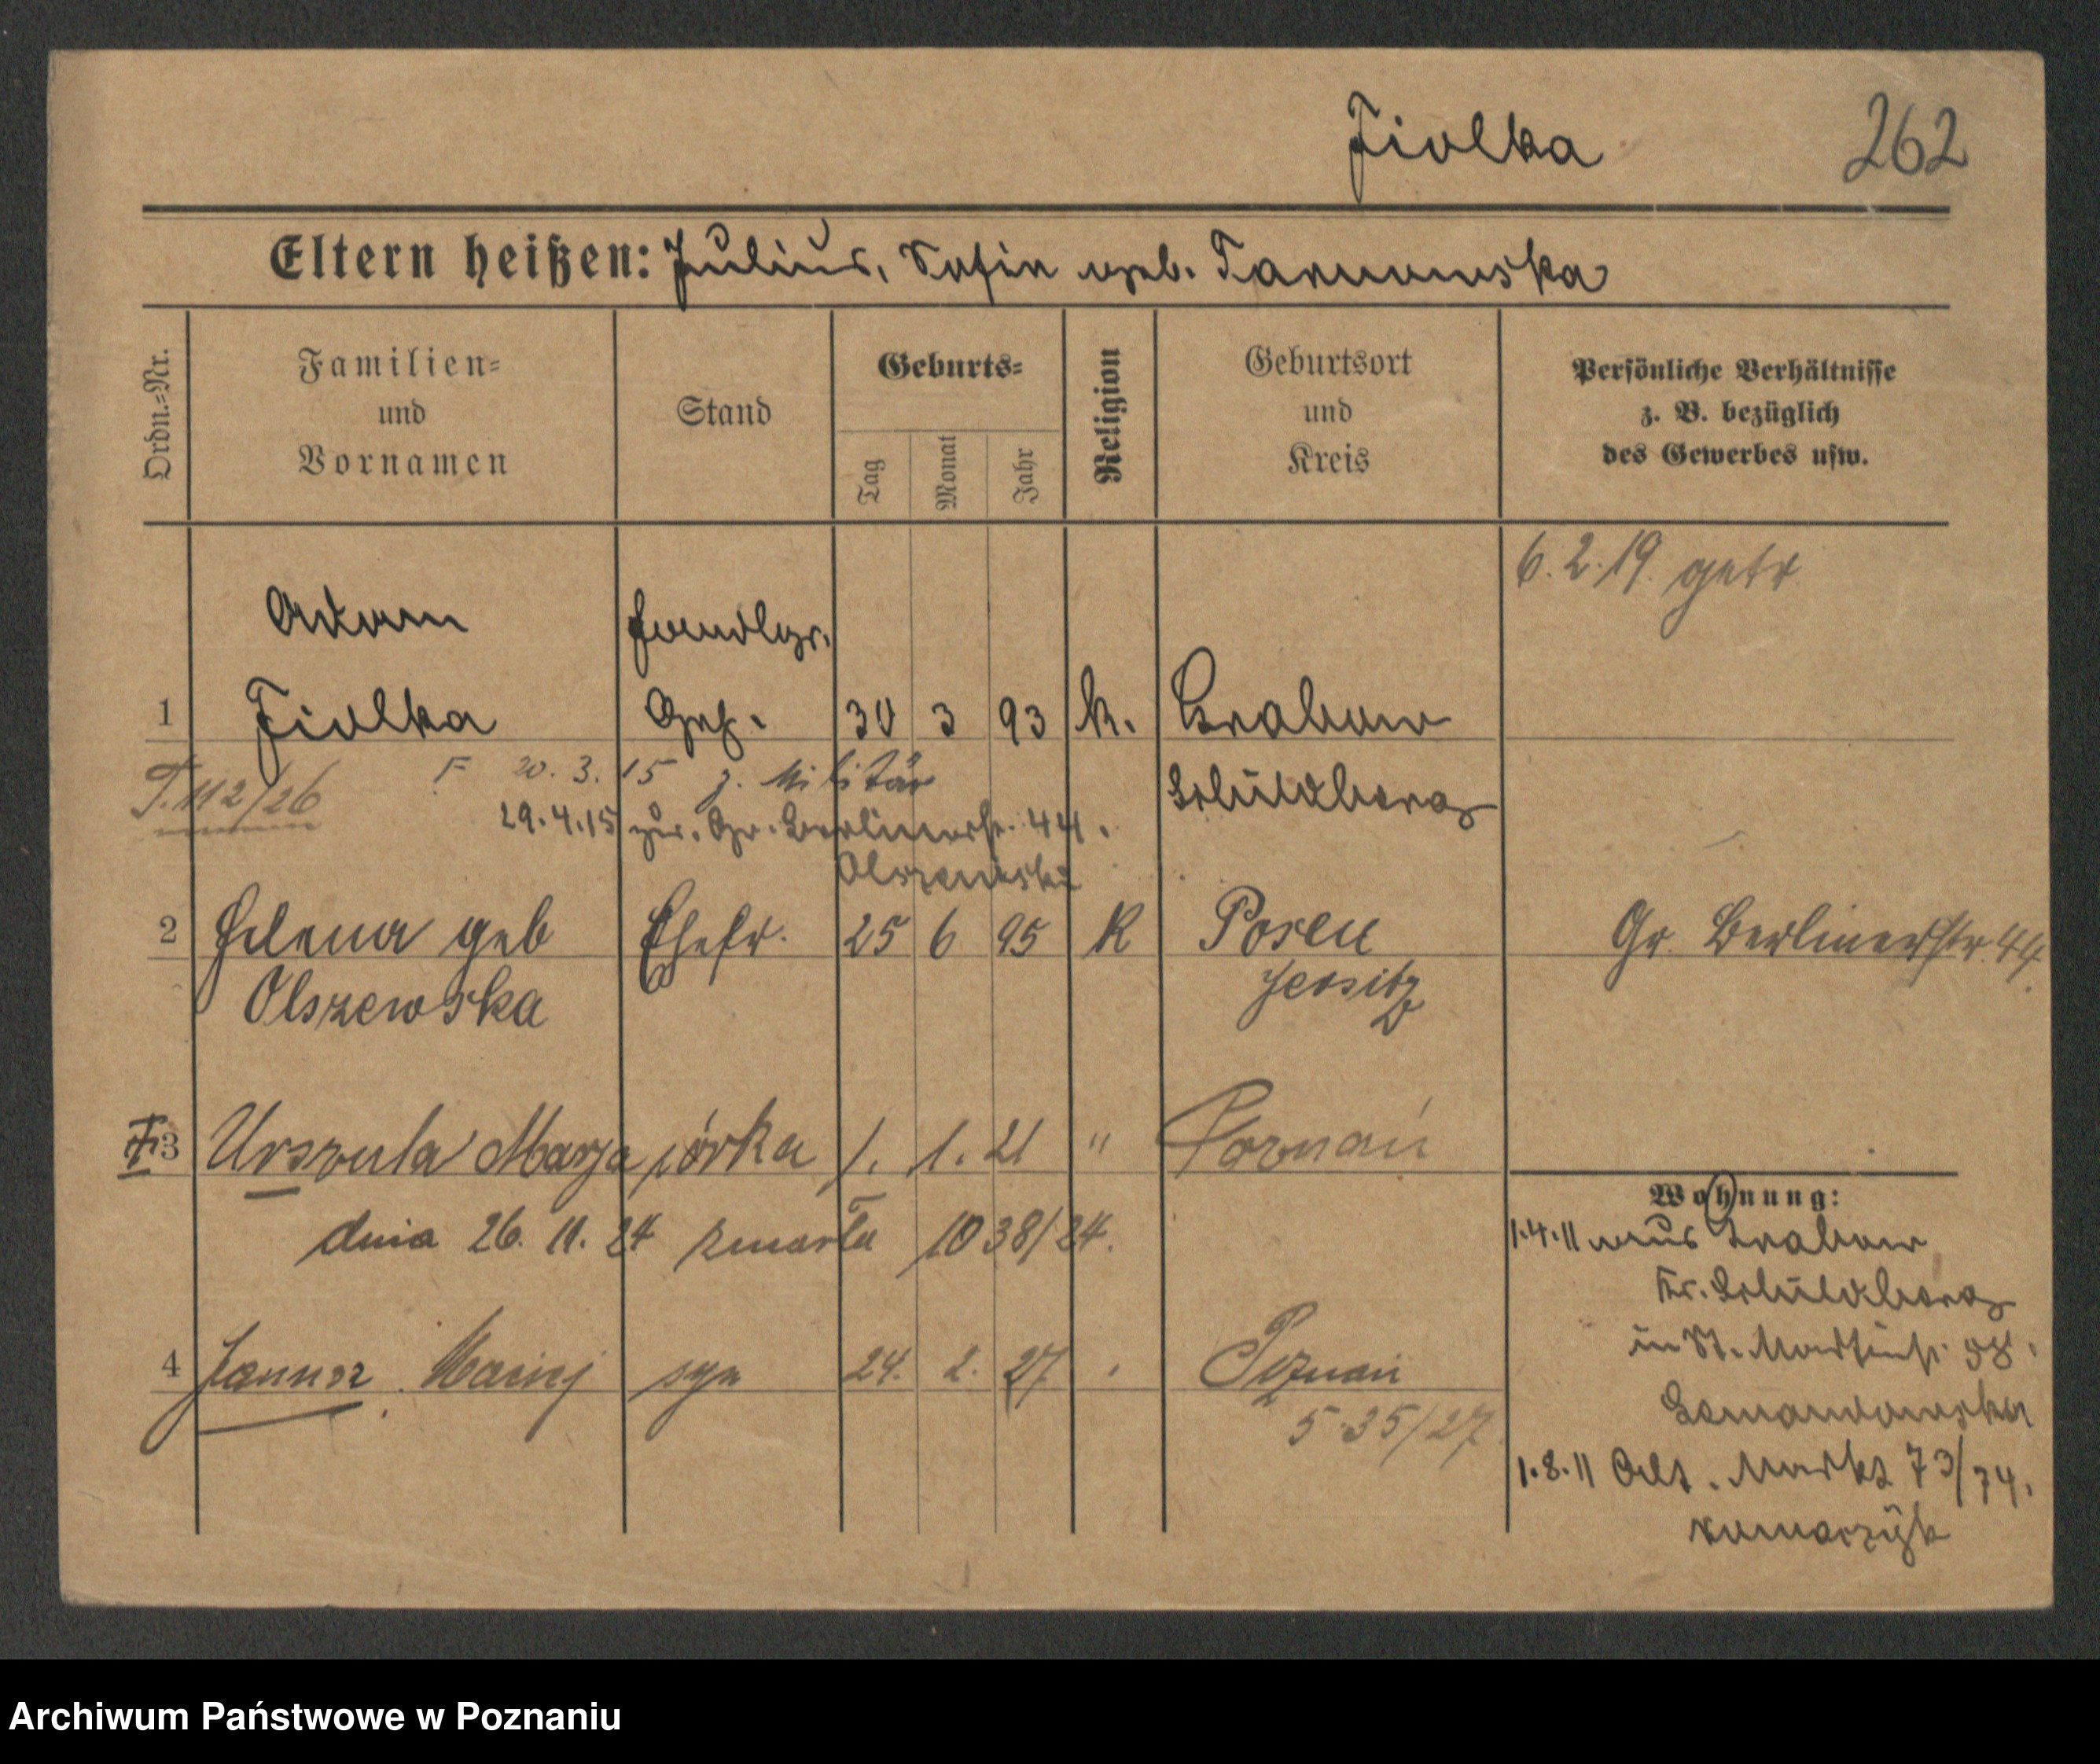 Fiolka 262
Eltern heißen: Julius, Sofia geb. Tarnowska
Ordn.=Nr.
Familien=
und
Vornamen
Stand
Geburts=
Tag
Monat
Jahr
Religion
Geburtsort
und
Kreis
Persönliche Verhältnisse
z. B. bezüglich
des Gewerbes usw.
6.2.19. getr
Adam Handlgs.
1 Fiolka Geh. 30 3 93 k. Grabow
Schildberg
T.112/26
F 20.3.15 z. Militär
29.4.15 zur. Gr. Berlinerstr. 44.
Olszewski
2 Helena geb Ehefr. 25 6 95 K Posen Gr. Berlinerstr. 44.
Olszewska Jersitz
3 Urszula Marja córka 1. 1. 21 " Poznań
dnia 26. 11. 24 zmarła 1038/24.
4 Janusz Maciej syn 24. 2. 27 Poznań
535/27
Wohnung:
1.4.11 aus Grabow
Kr. Schildberg
in St. Martinstr. 58.
1.8.11 Alt. Markt 73/74.
Archiwum Państwowe w Poznaniu